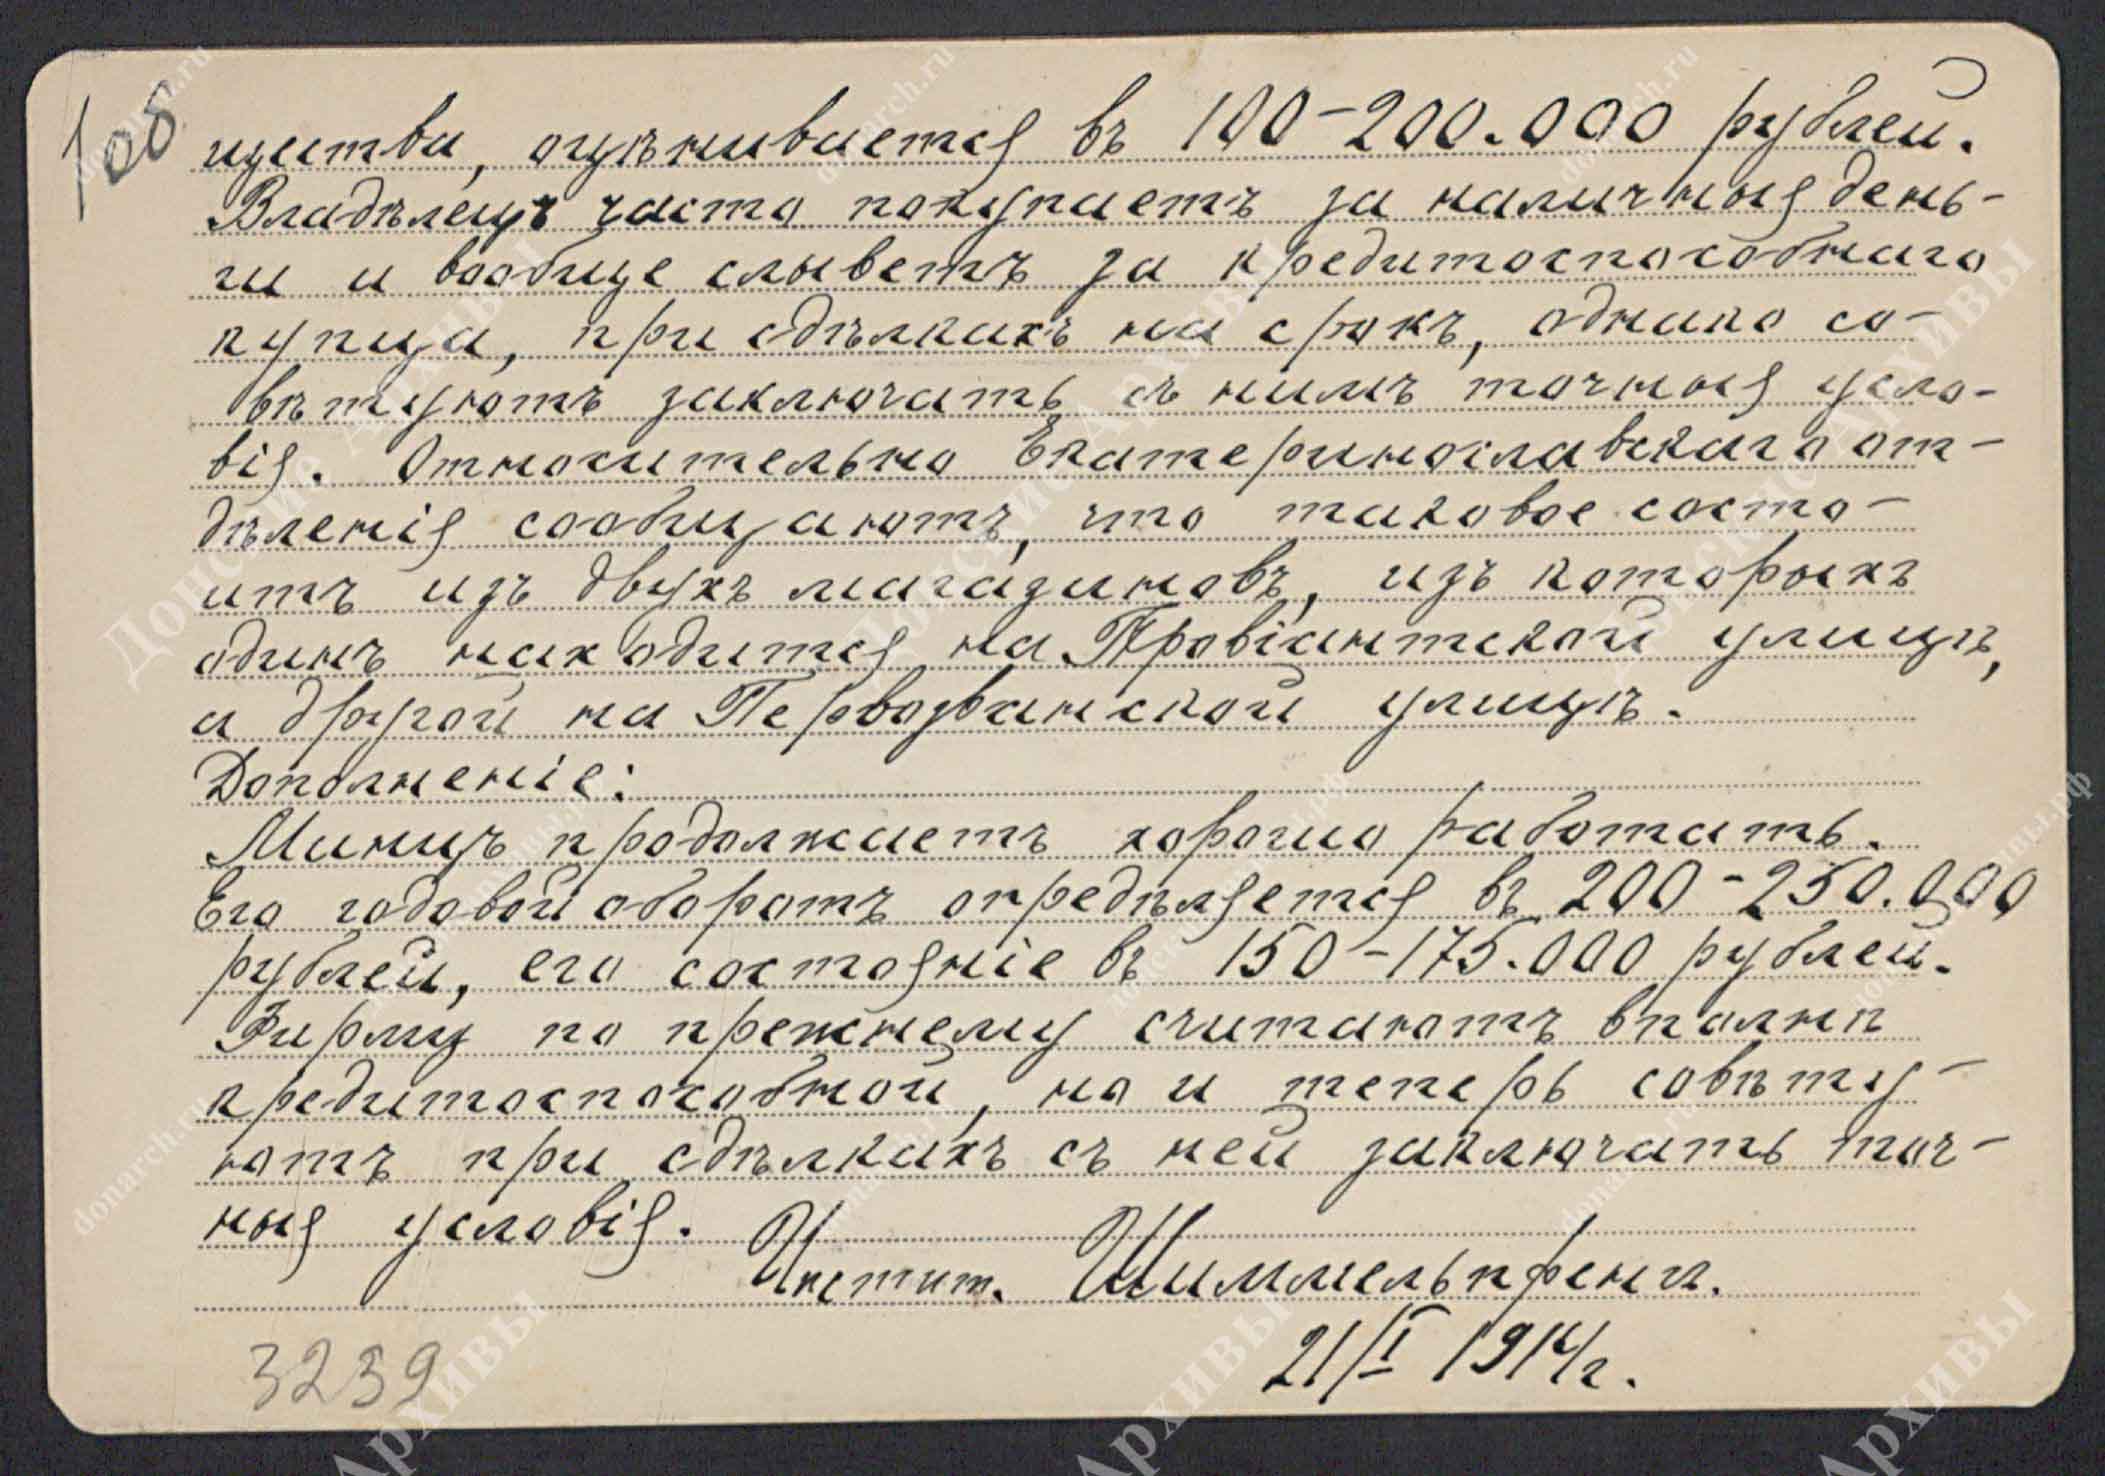 108
щества, оцѣнивается въ 100-200.000 рублей.
Владѣлецъ часто покупаетъ за наличныя день-
ги и вообще слыветъ за кредитоспособнаго
купца, при сдѣлкахъ на срокъ, однако со-
вѣтуютъ заключать съ нимъ точныя усло-
вія. Относительно Екатеринославскаго от-
дѣленія сообщаютъ, что таковое состо-
итъ изъ двухъ магазиновъ, изъ которыхъ
одинъ находится на Провіантской улицѣ,
а другой на Первозванской улицѣ.
Дополненіе:
Минцъ продолжаетъ хорошо работать.
Его годовой оборотъ опредѣляется въ 200-250.000
рублей, его состояніе въ 150-175.000 рублей.
Фирму по прежнему считаютъ вполнѣ
кредитоспособной, но и теперь совѣту-
ютъ при сдѣлкахъ съ ней заключать точ-
ныя условія.
Инстит. Шиммельпфенга.
21/I 1914г.
3239
Донские Архивы
donarch.ru